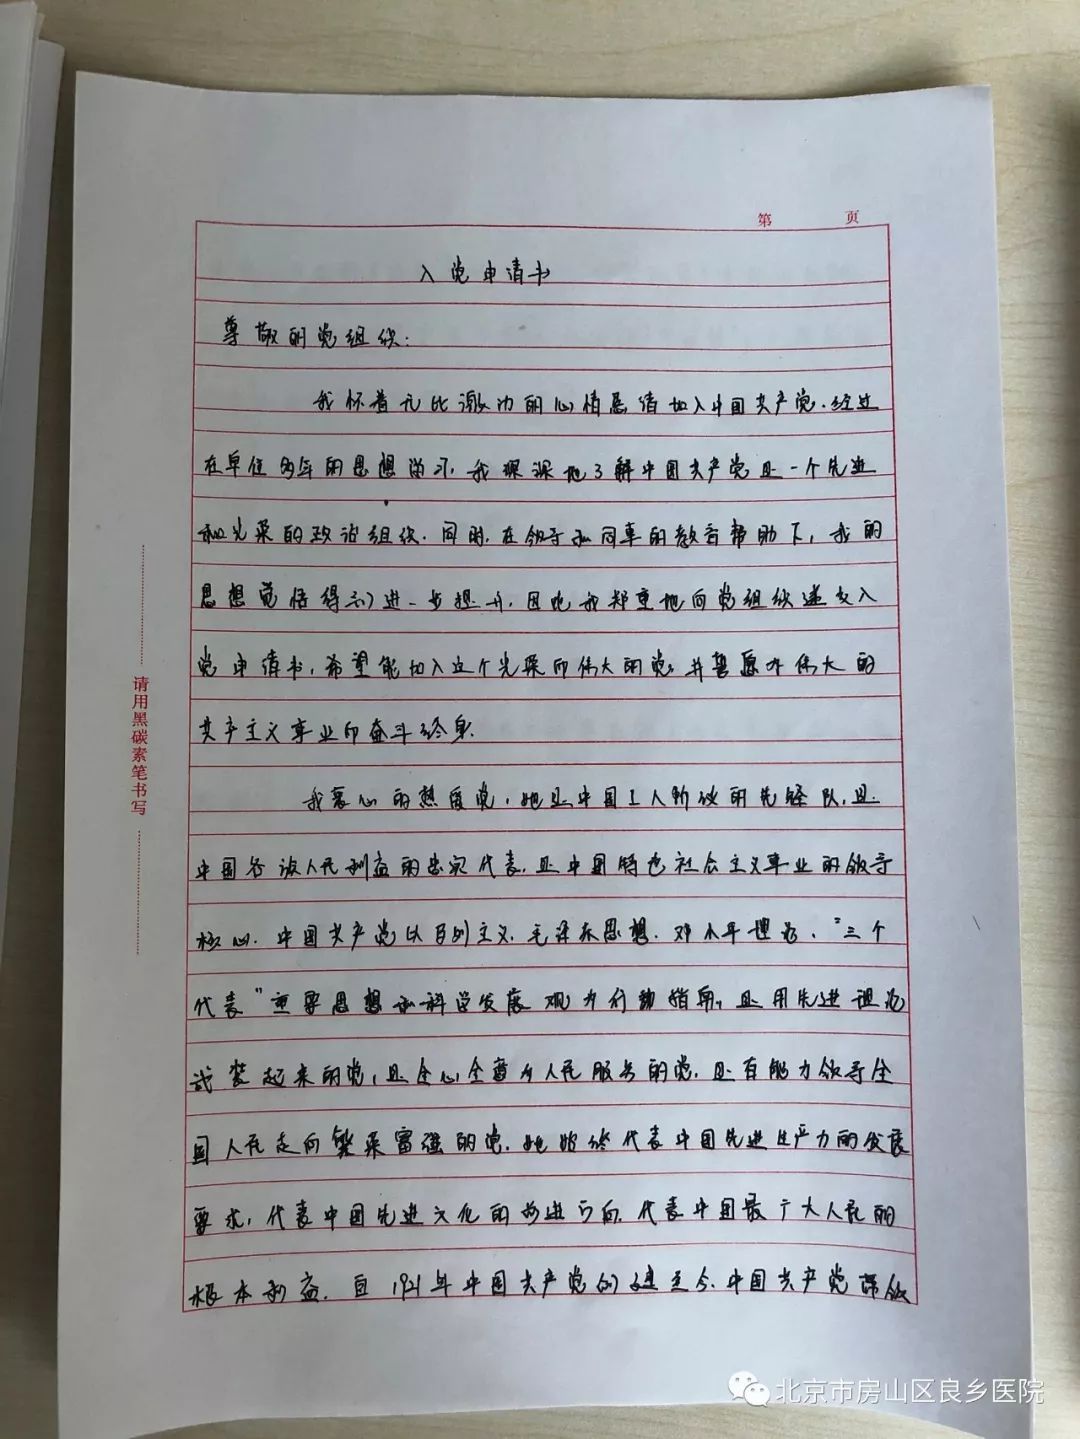 第 页
入党申请书
尊敬的党组织：
我怀着无比激动的心情恳请加入中国共产党.经过
在单位多年的思想学习,我深深地了解中国共产党是一个先进
和光荣的政治组织.同时,在领导和同事的教育帮助下,我的
思想觉悟得到进一步提升,因此我郑重地向党组织递交入
党申请书,希望能加入这个光荣而伟大的党,并誓愿为伟大的
共产主义事业的奋斗终身.
我衷心的热爱党,她是中国工人阶级的先锋队,是
中国各族人民利益的忠实代表,是中国特色社会主义事业的领导
核心.中国共产党以马列主义、毛泽东思想、邓小平理论、“三个
代表”重要思想和科学发展观为行动指南,是用先进理论
武装起来的党,是全心全意为人民服务的党,是有能力领导全
国人民走向繁荣富强的党.她始终代表中国先进生产力的发展
要求,代表中国先进文化的前进方向,代表中国最广大人民的
根本利益.自1921年中国共产党的建至今,中国共产党带领
请用黑碳素笔书写
北京市房山区良乡医院